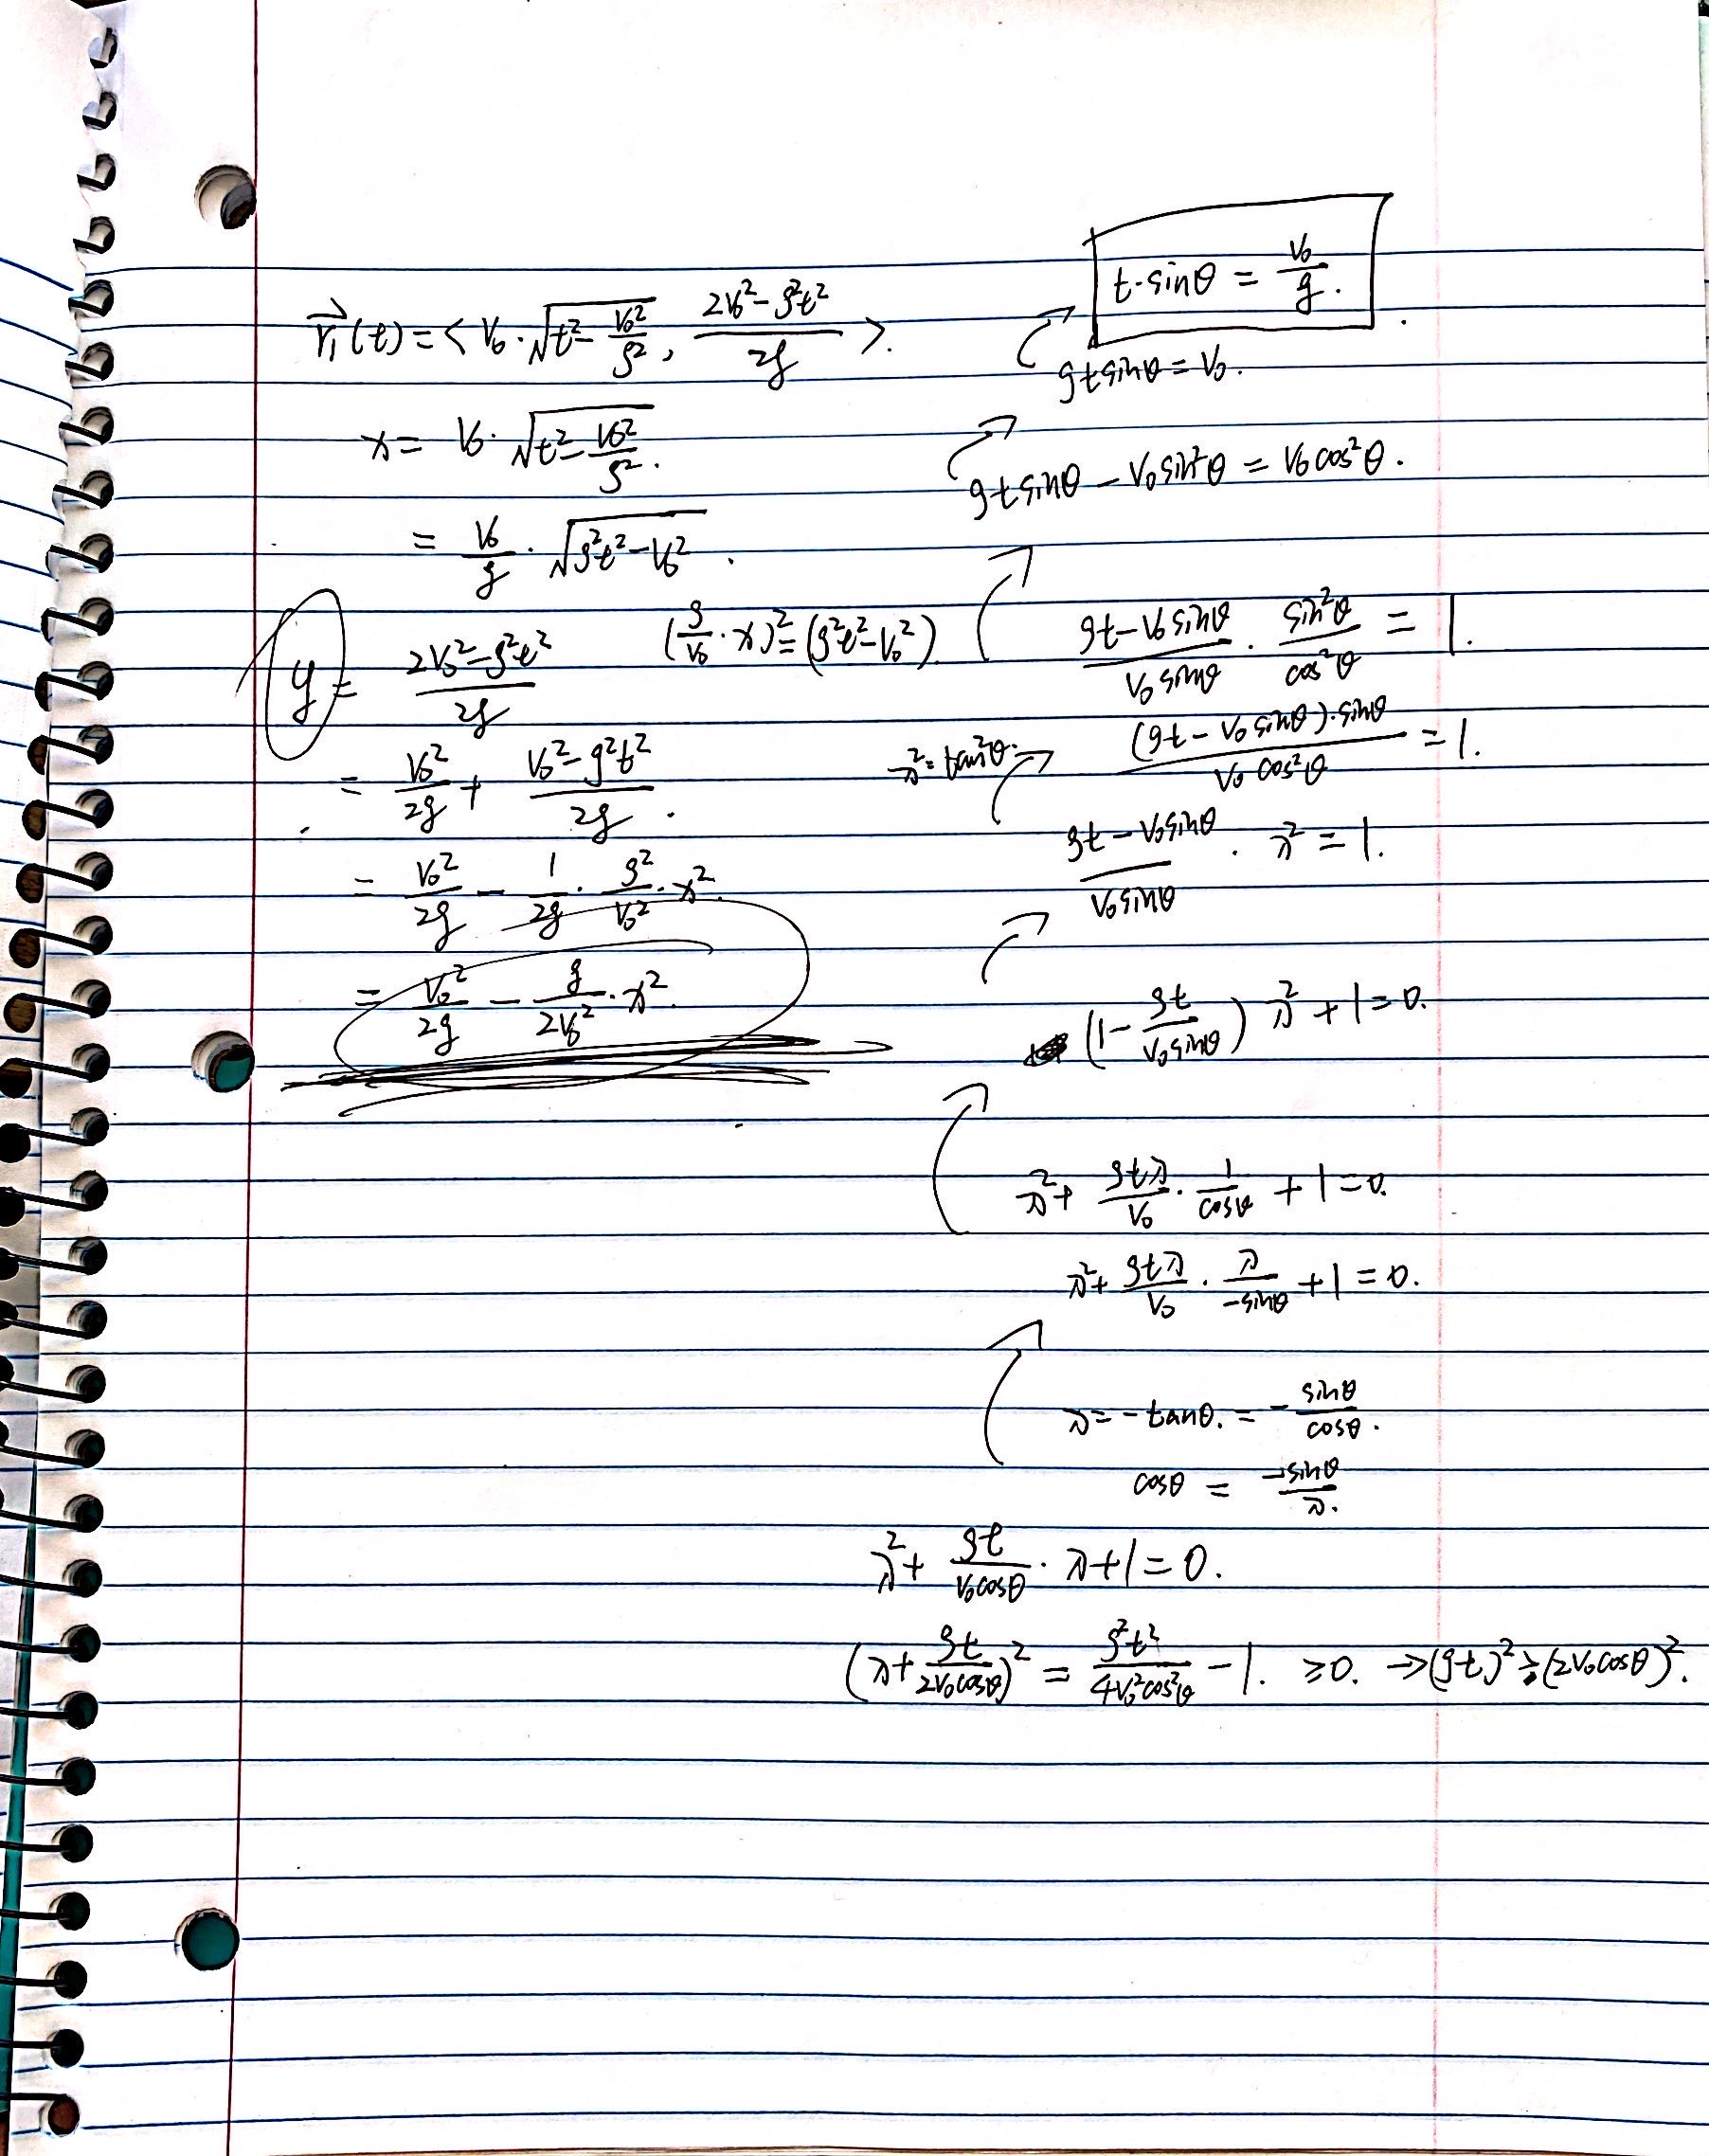 r⃗₁(t) = < V₀·√(t² − V₀²/g²), (2V₀² − g²t²)/2g >.
x = V₀·√(t² − V₀²/g²).
= V₀/g · √(g²t² − V₀²).
y = (2V₀² − g²t²)/2g
(g/V₀ · x)² = (g²t² − V₀²).
= V₀²/2g + (V₀² − g²t²)/2g.
= V₀²/2g − 1/2g · g²/V₀² · x².
= V₀²/2g − g/2V₀² · x².
t·sinθ = V₀/g.
gt sinθ = V₀.
gt sinθ − V₀ sin²θ = V₀ cos²θ.
(gt − V₀ sinθ)/(V₀ sinθ) · sin²θ/cos²θ = 1.
((gt − V₀ sinθ)·sinθ)/(V₀ cos²θ) = 1.
λ² = tan²θ.
(gt − V₀ sinθ)/(V₀ sinθ) · λ² = 1.
(1 − gt/(V₀ sinθ)) λ² + 1 = 0.
λ² + gtλ/V₀ · 1/cosθ + 1 = 0.
λ² + gtλ/V₀ · λ/(−sinθ) + 1 = 0.
λ = −tanθ. = −sinθ/cosθ.
cosθ = −sinθ/λ.
λ² + gt/(V₀cosθ) · λ + 1 = 0.
(λ + gt/(2V₀cosθ))² = g²t²/(4V₀²cos²θ) − 1. ≥0. → (gt)² ≥ (2V₀cosθ)².